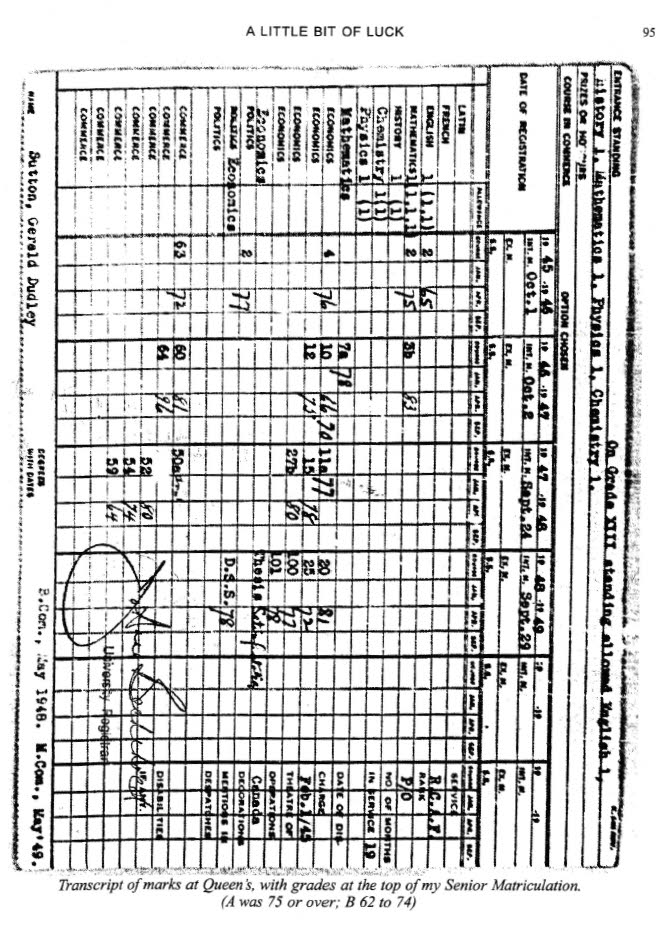 A LITTLE BIT OF LUCK 95
ENTRANCE STANDING On Grade XIII standing allowed English 1,
History 1, Mathematics 1, Physics 1, Chemistry 1.
PRIZES OR
COURSE IN COMMERCE OPTION CHOSEN
DATE OF REGISTRATION 19 45 -19 46 19 46 -19 47 19 47 -19 48 19 48 -19 49 19 -19 19 -19
INT. M. Oct.1 INT. M. Oct.2 INT. M. Sept.24 INT. M. Sept.29 INT. M. INT. M.
EX. M. EX. M. EX. M. EX. M. EX. M. EX. M.
S.S. S.S. S.S. S.S. S.S. S.S.
ALLOWANCE COURSE JAN. APR. SEP. COURSE JAN. APR. SEP. COURSE JAN. APR. SEP. COURSE JAN. APR. SEP.
LATIN SERVICE
FRENCH R.C.A.F.
ENGLISH 1 (1,1) 2 65 RANK
MATHEMATICS 1(1,1,1) 2 75 3b 83 P/O
HISTORY 1 (1) NO OF MONTHS
Chemistry 1(1) IN SERVICE 19
Physics 1 (1)
Mathematics 7a 78 DATE OF DIS-
ECONOMICS 4 76 10 66 70 11a 77 20 81 CHARGE
ECONOMICS 12 75 15 78 25 72 Feb.1/45
ECONOMICS 27b 80 100 77 THEATRE OF
ECONOMICS 101 78 OPERATIONS
Economics Thesis Satisfactory Canada
POLITICS 2 77 DECORATIONS
POLITICS Economics D.S.S. 78 MENTIONS IN
POLITICS DESPATCHES
COMMERCE 63 72 60 81 50a
COMMERCE 64 86 DISABILITIES
COMMERCE 52 80 IF ANY.
COMMERCE 54 74
COMMERCE 59 64
COMMERCE
University Registrar
NAME Sutton, Gerald Dudley DEGREES WITH DATES B.Com., May 1948. M.Com., May'49.
Transcript of marks at Queen's, with grades at the top of my Senior Matriculation.
(A was 75 or over; B 62 to 74)